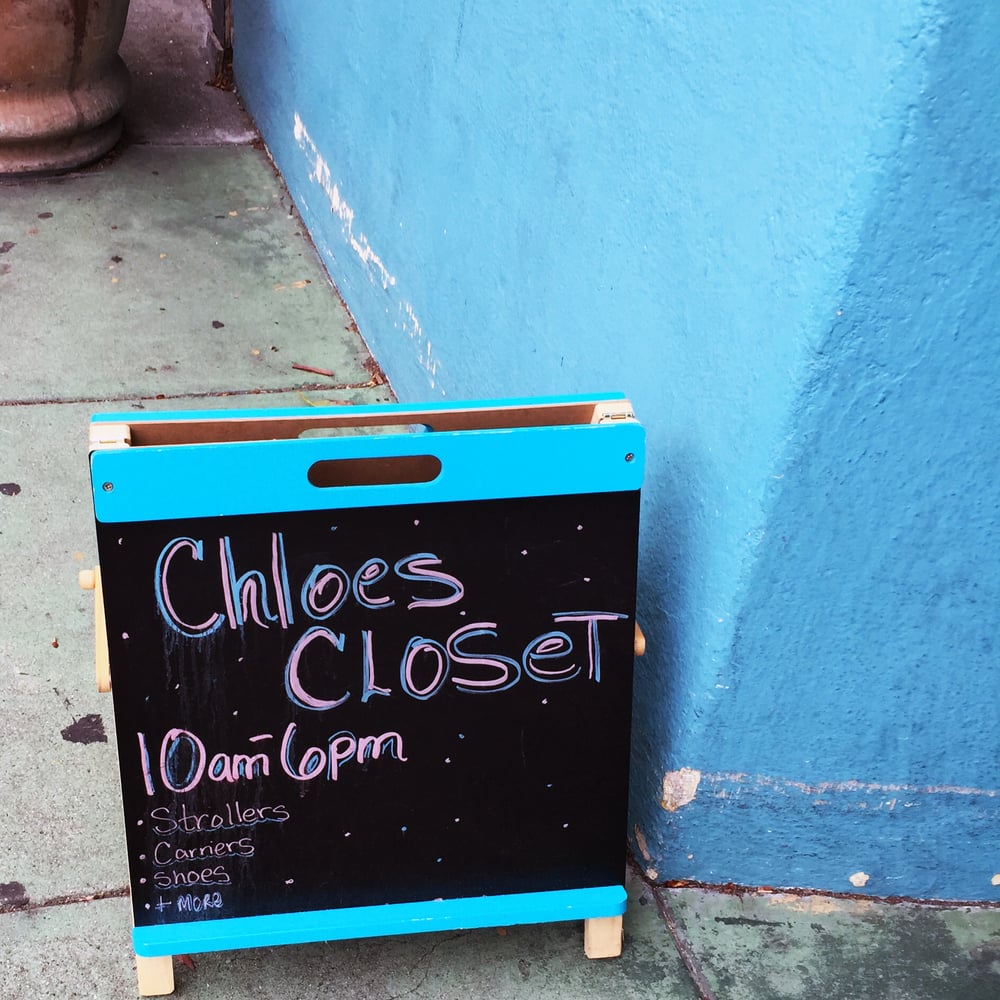 Chloes
CLOSeT
10am-6pm
• Strollers
• Carriers
• Shoes
• + MORE